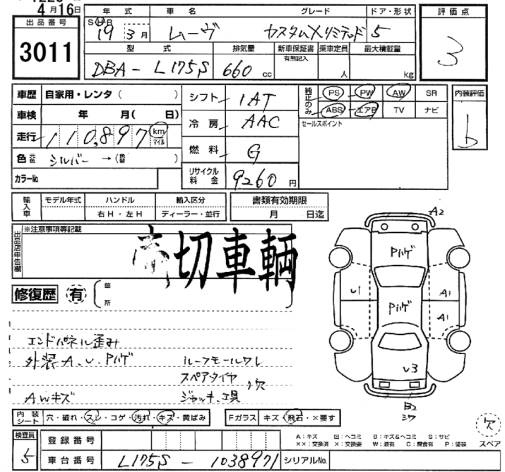 4月16日
出品番号
3011
年式 車名 グレード ドア・形状 評価点
19年3月 ムーヴ カスタムXリミテッド 5
3
型式 排気量 新車保証書 乗車定員 最大積載量
有無記入
DBA-L175S 660cc 人 kg
車歴 自家用・レンタ( )
車検 年 月( 日)
走行 110,897 km マイル
色 シルバー →( )
カラーNo
シフト IAT
冷房 AAC
燃料 G
リサイクル料金 9260円
純正のみ PS PW AW SR
ABS エアB TV ナビ
セールスポイント
内装評価
b
輸入車 モデル年式 ハンドル 輸入区分
右H・左H ディーラー・並行
書類有効期限
月 日迄
※注意事項等記載
出品店申告欄
済切車輌
修復歴 有 箇所
エンドパネル歪み
外装A.U.Pハゲ ルーフモールワレ
スペアタイヤ
AWキズ ジャッキ、工具 欠
A2
Pハゲ
U1 A1
Pハゲ
A1
U3
B2
欠
スペア
内装シート 穴・破れ・スレ・コゲ・汚れ・キズ・黄ばみ
Fガラス キズ・飛石・×要す
検査員
5
登録番号
車台番号 L175S-1038971 シリアルNo.